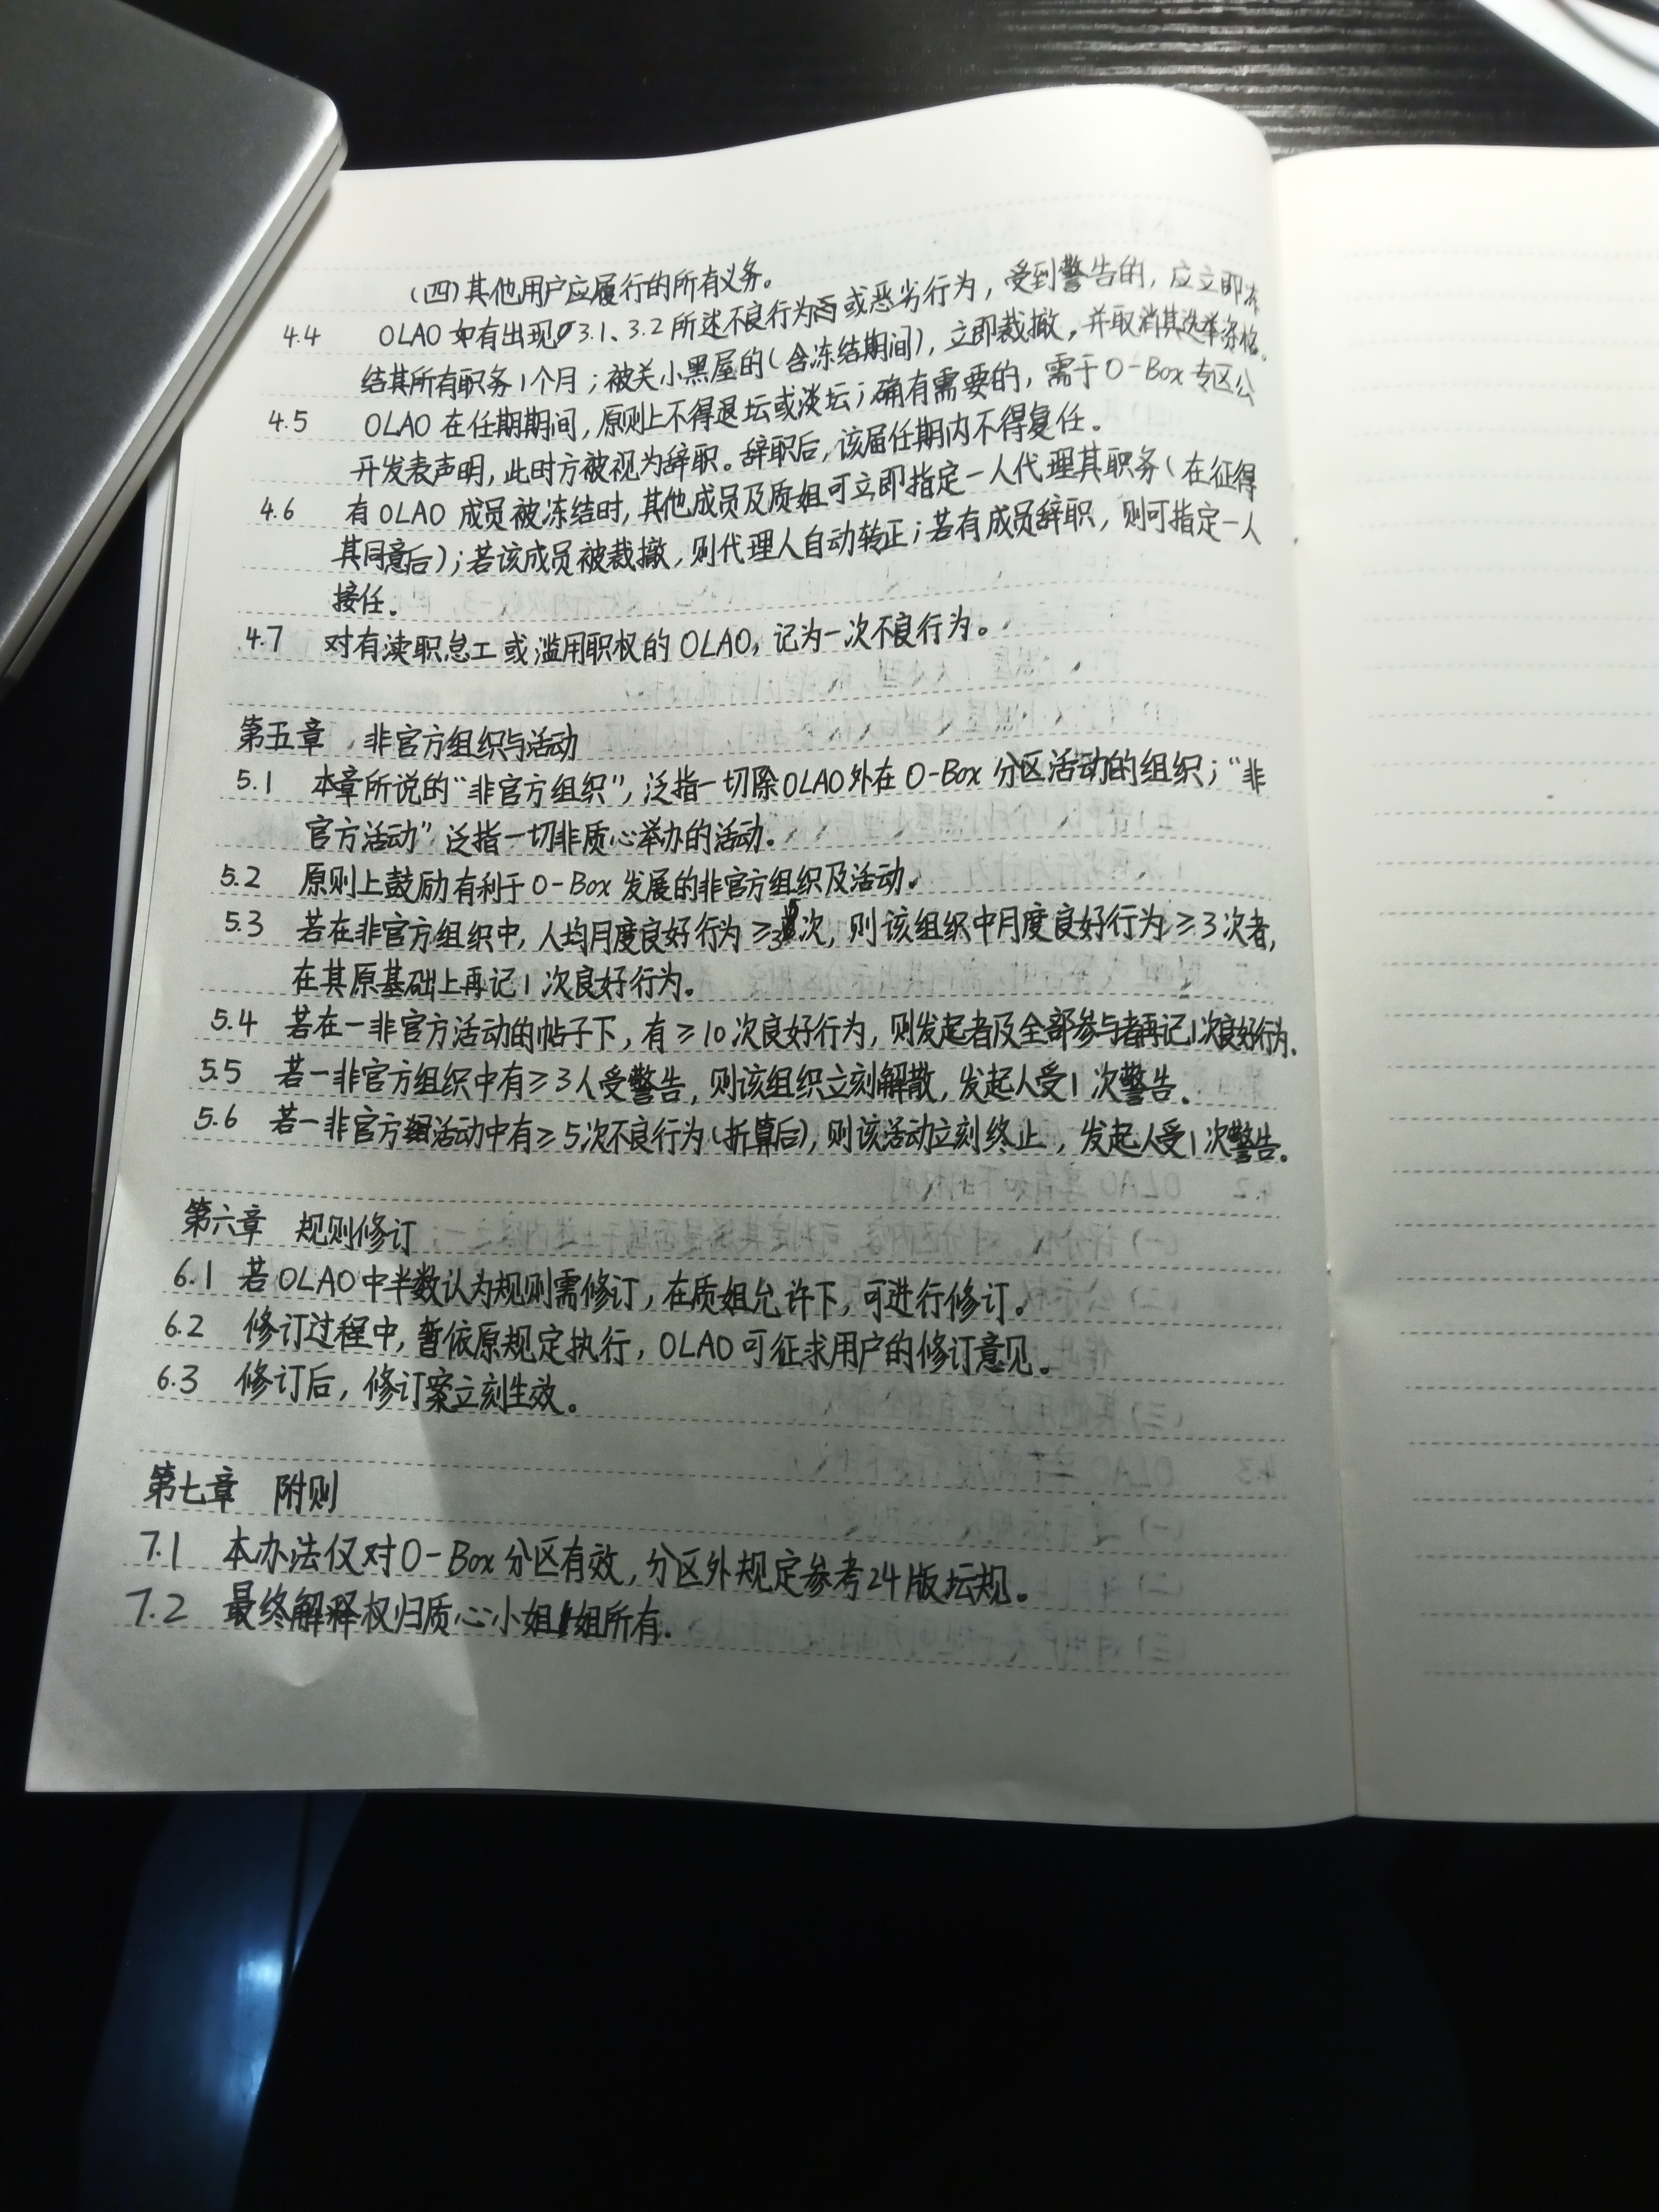 (四)其他用户应履行的所有义务。
4.4 OLAO 如有出现3.1、3.2所述不良行为或恶劣行为，受到警告的，应立即冻
结其所有职务1个月；被关小黑屋的(含冻结期间)，立即裁撤，并取消其选举资格。
4.5 OLAO 在任期期间，原则上不得退坛或淡坛；确有需要的，需于O-Box专区公
开发表声明，此时方被视为辞职。辞职后，该届任期内不得复任。
4.6 有OLAO 成员被冻结时，其他成员及质姐可立即指定一人代理其职务(在征得
其同意后)；若该成员被裁撤，则代理人自动转正；若有成员辞职，则可指定一人
接任。
4.7 对有渎职怠工或滥用职权的OLAO，记为一次不良行为。
第五章 非官方组织与活动
5.1 本章所说的“非官方组织”，泛指一切除OLAO外在O-Box分区活动的组织；“非
官方活动”泛指一切非质心举办的活动。
5.2 原则上鼓励有利于O-Box发展的非官方组织及活动。
5.3 若在非官方组织中，人均月度良好行为≥3次，则该组织中月度良好行为≥3次者，
在其原基础上再记1次良好行为。
5.4 若在一非官方活动的帖子下，有≥10次良好行为，则发起者及全部参与者再记1次良好行为.
5.5 若一非官方组织中有≥3人受警告，则该组织立刻解散，发起人受1次警告.
5.6 若一非官方活动中有≥5次不良行为(折算后)，则该活动立刻终止，发起人受1次警告.
第六章 规则修订
6.1 若OLAO中半数认为规则需修订，在质姐允许下，可进行修订。
6.2 修订过程中，暂依原规定执行，OLAO可征求用户的修订意见。
6.3 修订后，修订案立刻生效。
第七章 附则
7.1 本办法仅对O-Box分区有效，分区外规定参考24版坛规。
7.2 最终解释权归质心小姐姐所有.